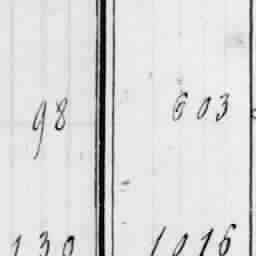 98 603
139 1016